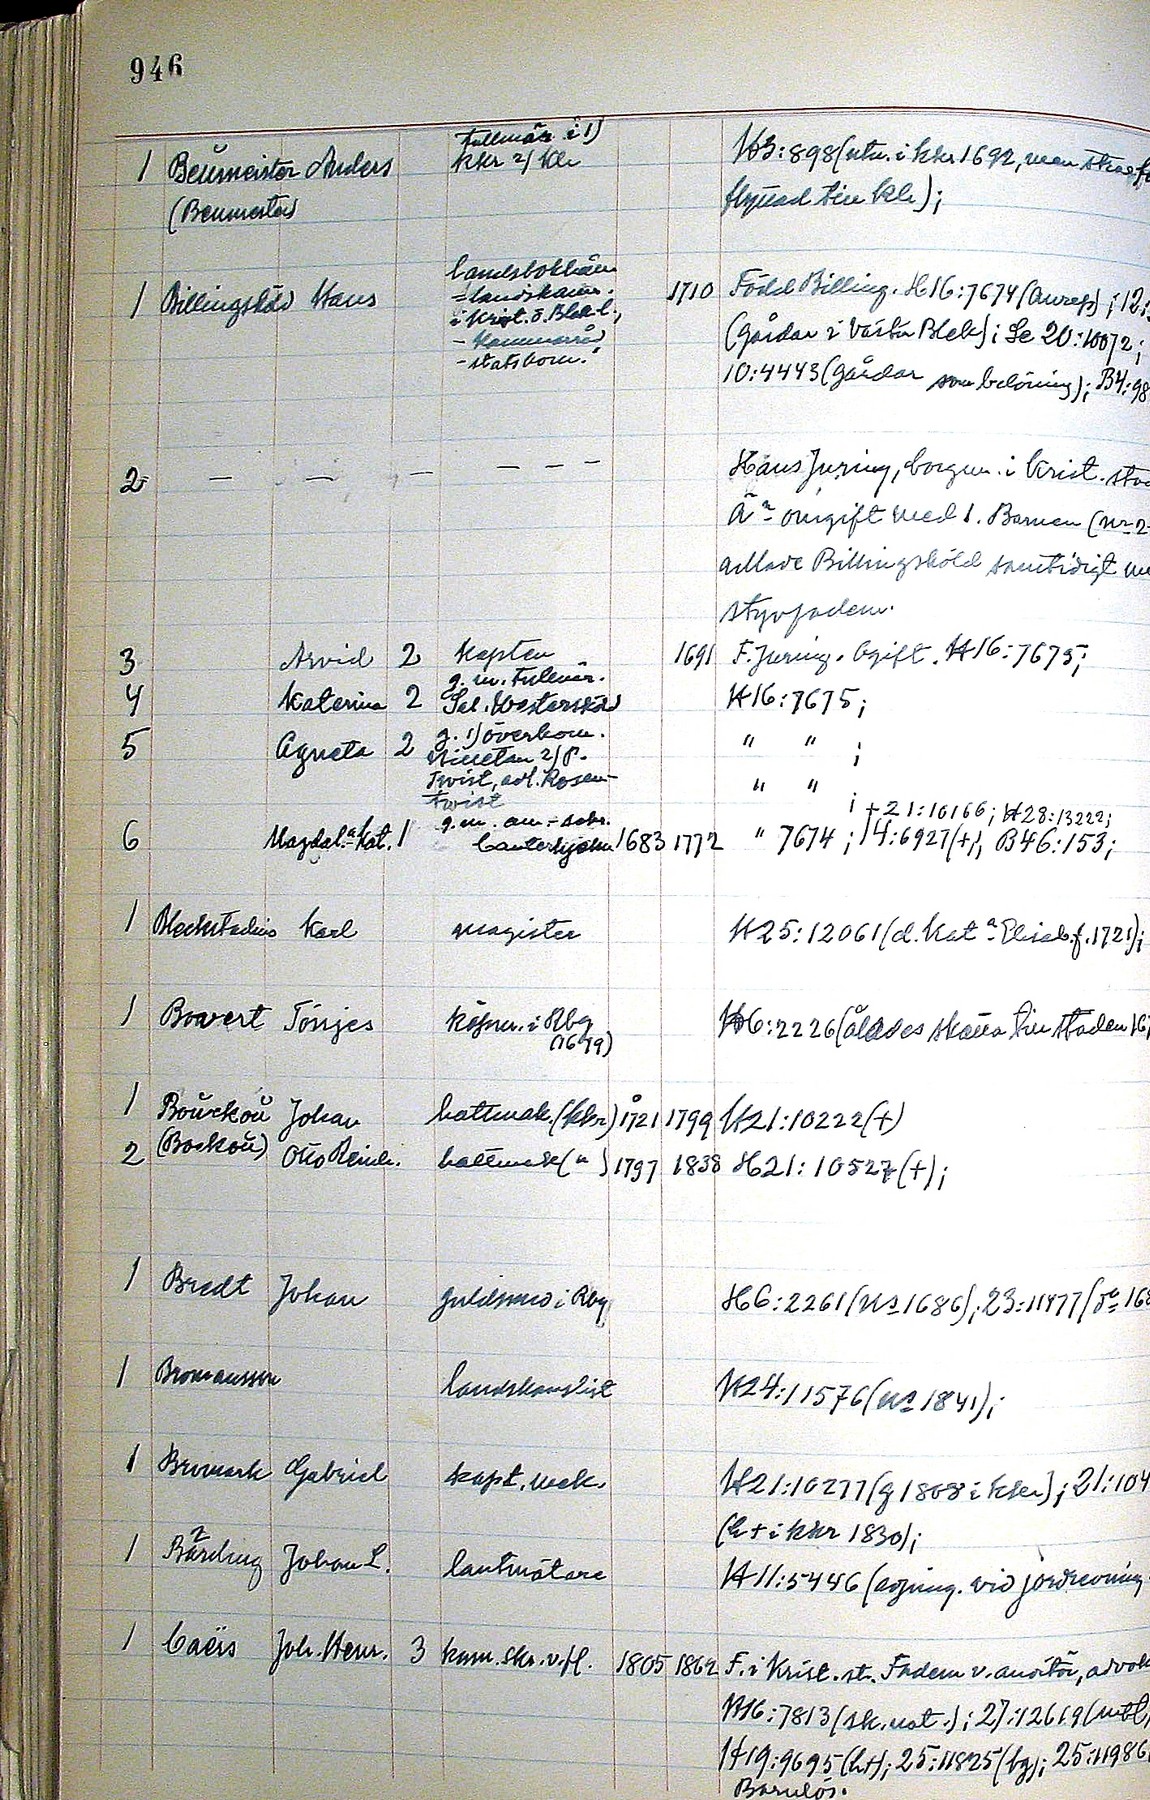 946
1 Beümeister Anders tullnär i 1) kkr 2) kh H3:898 (utn. i kkr 1692, men strax
(Beumester) flyttad till kh);
1 Billingsköld Hans landsbokhåll. 1710 Född Billing. H16:7674 (Anrep); 12:
=landskamr.
i Krist. o. Blek. l., (gårdar i västra Blek); Se 20:10072;
- kammarråd
- statskom. 10:4443 (gårdar som belöning); B4:98
2 — — — — — — Hans Juring, borgm. i Krist. stad
Ä omgift med 1. Barnen (nr 2
adlade Billingsköld samtidigt
styvfadern.
3 Arvid 2 kapten 1691 F. Juring. Ogift. H16:7675;
4 Katerina 2 g. m. tullnär. H16:7675;
5 Agneta 2 g. 1) överkom. " " ;
2) P.
Twist, adl. Rosen- " " ;
twist
; +21:10166; H28:13222;
6 Magdal. Kat. 1 g. m. 1683 1772 " 7674; 14:6927 (+); B46:153;
1 Bleckstadius Karl magister H25:12061 (d. Kat Elisab. f. 1721);
1 Bowert Tönjes köpm. i Rbg H6:2226 (ålades skatta till staden
(1679)
1 Bourkou Johan hattmak. (kkr) 1721 1799 H21:10222 (+)
(Boskou)
2 Otto Reinh. hattmak (") 1797 1838 H21:10527 (+);
1 Bredt Johan guldsmed i Rbg H6:2261 (nr 1686); 23:11477
1 Bromansson landskanslist H24:11576 (nr 1841);
1 Bromark Gabriel kapt. mek. H21:10277 (g 1808 i kkr); 21:104
(h + i kkr 1830);
1 Bärding Johan L. lantmätare H11:5446 (avg. vid jordrevning
1 Caëis Joh. Henr. 3 kam. skr. v. fl. 1805 1862 F. i Krist. st. Fadern v. auditör, advok
H16:7813 (sk. nat.); 27:12619
H19:9695 (h+); 25:11825 (bg); 25:11986
Barnlös.